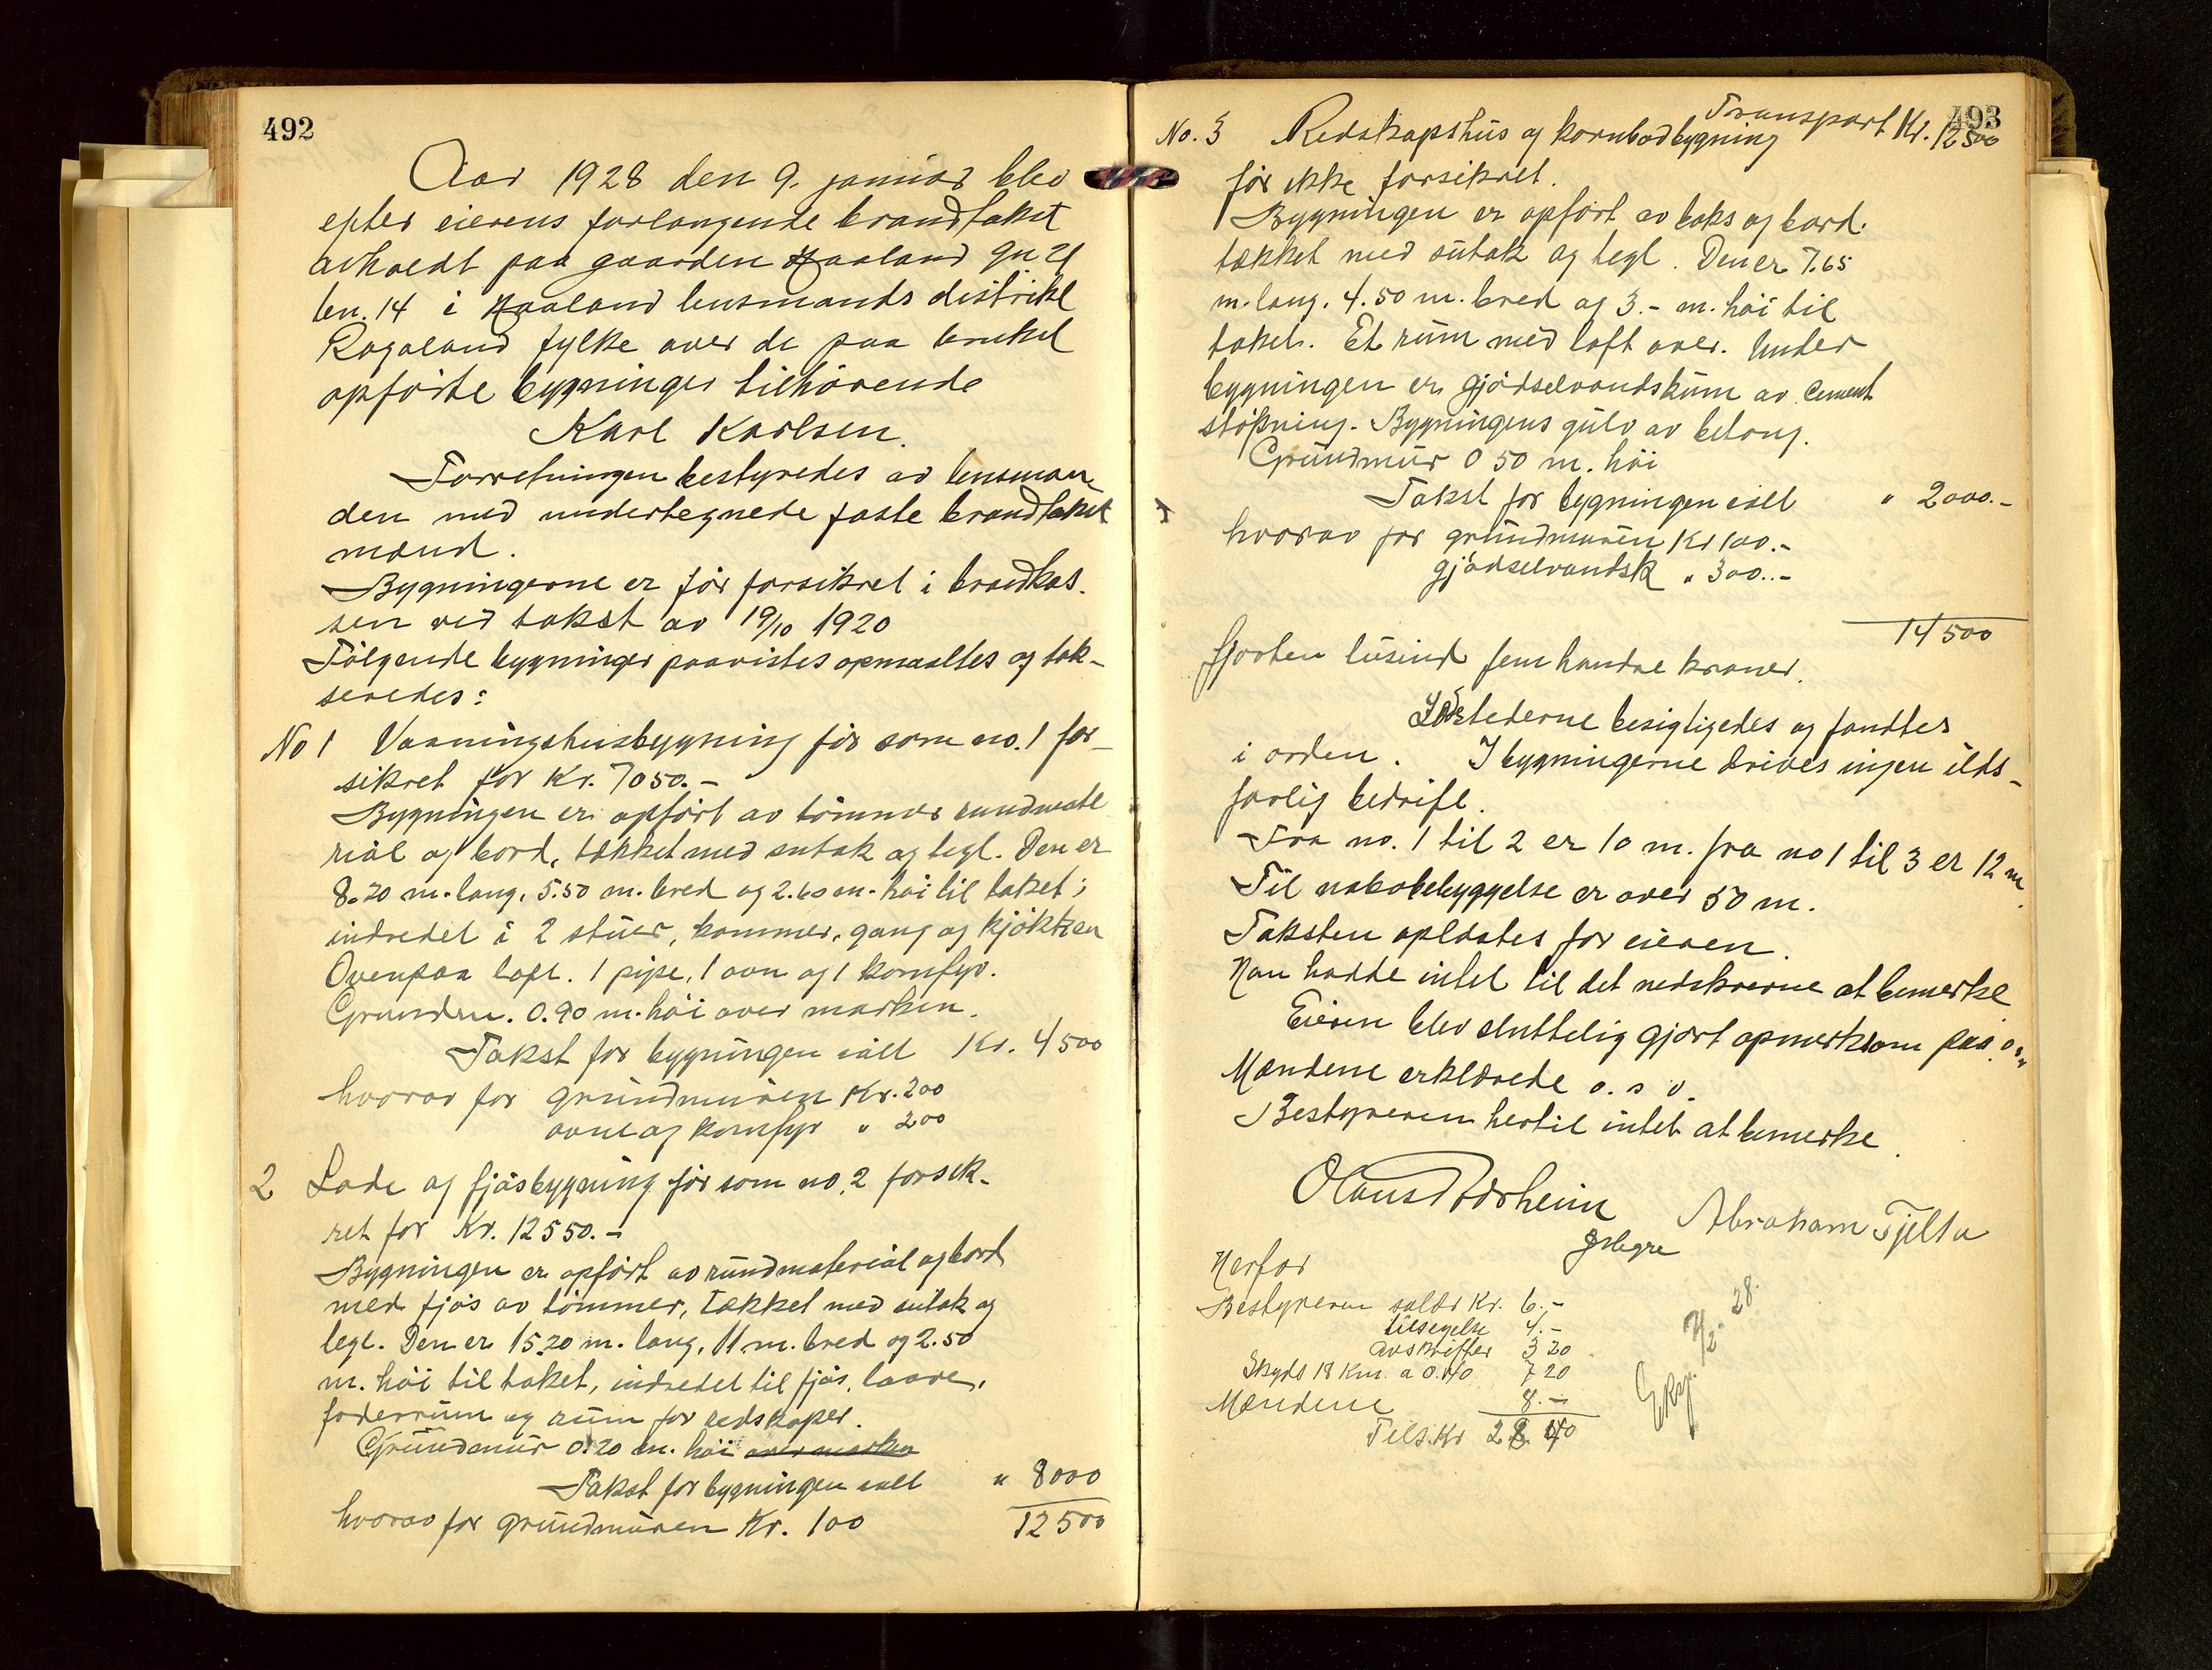 492
Aar 1928 den 9. januar blev
efter eierens forlangende brandtakst
avholdt paa gaarden Haaland gn 21
bn. 14 i Haaland lensmands distrikt
Rogaland fylke over de paa bruket
opførte bygninger tilhørende
Karl Karlsen.
Forretningen bestyredes av lensman
den med undertegnede faste brandtakst
mænd.
Bygningerne er før forsikret i brandkas.
sen ved takst av 19/10 1920
Følgende bygninger paavistes opmaaltes og tak-
seredes:
No 1 Vaaningshusbygning før som no. 1 for-
sikret for Kr. 7050.-
Bygningen er opført av tømmer rundmate
rial og bord, tækket med sutak og tegl. Den er
8.20 m. lang, 5.50 m. bred og 2.60 m. høi til taket;
indredet i 2 stuer, kammer, gang og kjøkken
Ovenpaa loft. 1 pipe, 1 ovn og 1 komfyr.
Grunden. 0.90 m. høi over marken.
Takst for bygningen ialt Kr. 4500
hvorav for grundmuren Kr. 200
ovne og komfyr " 200
2 Lade og fjøsbygning før som no. 2 forsik-
ret for Kr. 12550.-
Bygningen er opført av rundmaterial og bord
med fjøs av tømmer, tækket med sutak og
tegl. Den er 15.20 m. lang, 11 m. bred og 2.50
m. høi til taket, indredet til fjøs, laave,
foderrum og rum for redskaper.
Grundmur 0.20 m. høi over marken
Takst for bygningen ialt " 8000
hvorav for grundmuren Kr. 100 12500
493
Transport Kr. 12500
No. 3 Redskapshus og kornbodbygning
før ikke forsikret.
Bygningen er opført av boks og bord.
tækket med sutak og tegl. Den er 7.65
m. lang, 4.50 m. bred og 3.- m. høi til
taket. Et rum med loft over. Under
bygningen er gjødselvandskum av cement
støpning. Bygningens gulv av betong.
Grundmur 0 50 m. høi
Takst for bygningen ialt " 2000.-
hvorav for grundmuren Kr 100.-
gjødselvandsk " 300.-
14500
fjorten tusind fem hundre kroner.
Ildstederne besigtigedes og fandtes
i orden. I bygningerne drives ingen ilds-
farlig bedrift.
Fra no. 1 til 2 er 10 m. fra no 1 til 3 er 12 m.
Til nabobebyggelse er over 50 m.
Taksten oplæstes for eieren.
Han hadde intet til det nedskrevne at bemerke
Eieren blev sluttelig gjort opmerksom paa o.s.v.
Mændene erklærede o. s v.
Bestyreren hertil intet at bemerke.
Abraham Tjelta
Herfor
Bestyreren salær Kr. 6.-
tilsigelse 4.-
avskrifter 3 20
Skyds 18 Km. a 0.40 7 20
Mændene 8.-
Tils. Kr 28 40
7/2. 28.